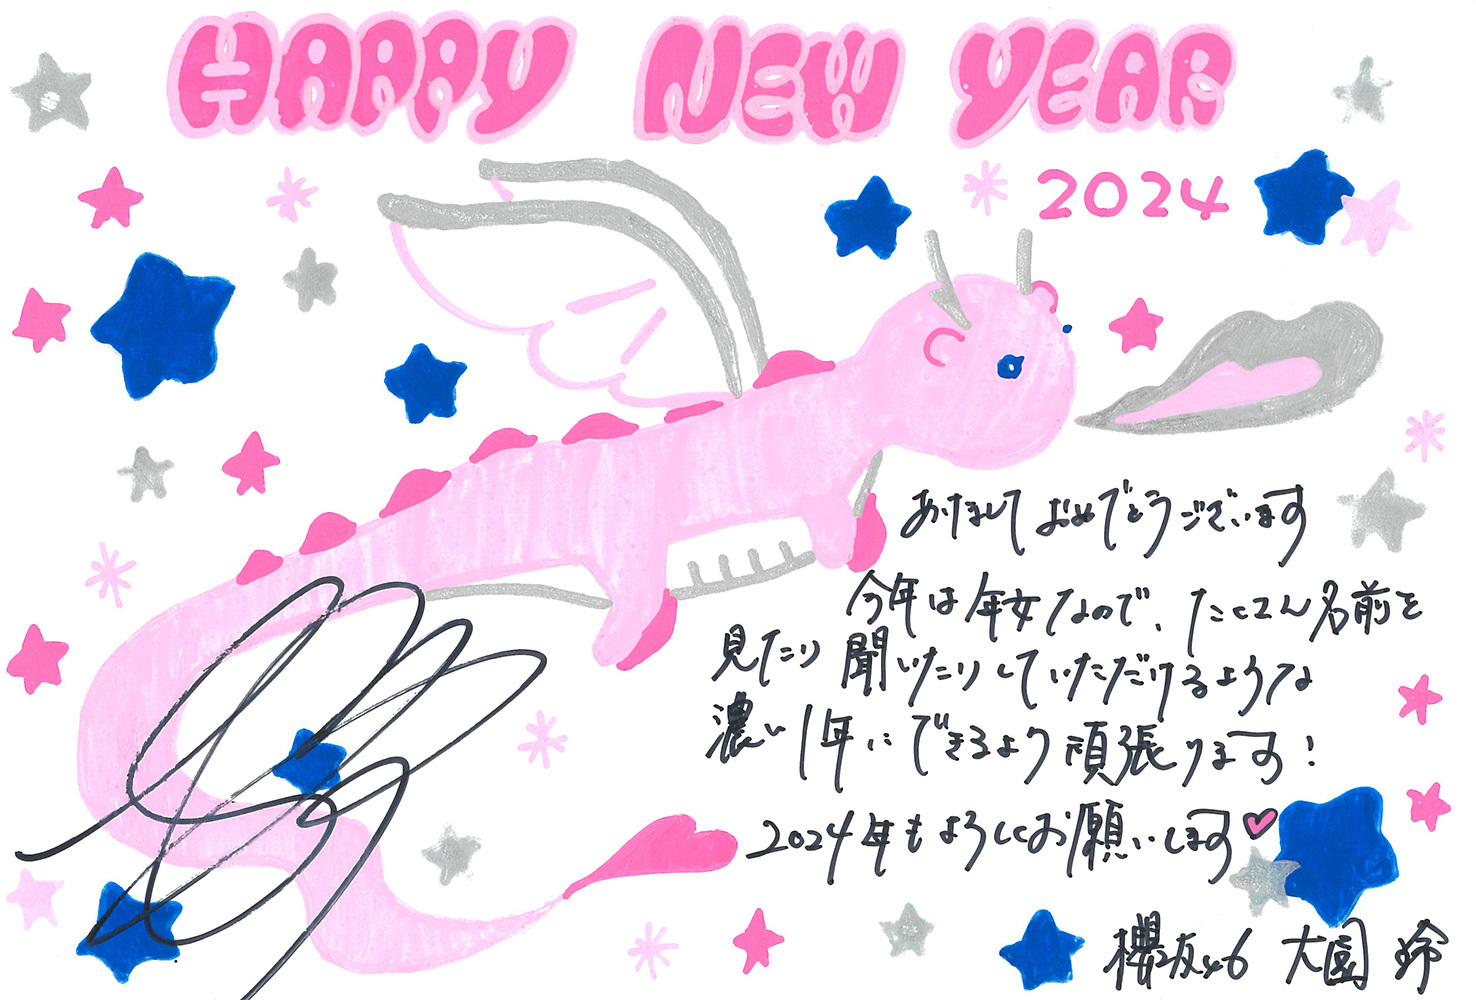 HAPPY NEW YEAR
2024
あけましておめでとうございます
今年は年女なので、たくさん名前を
見たり聞いたりしていただけるような
濃い1年にできるよう頑張ります!
2024年もよろしくお願いします♥
櫻坂46 大園 玲